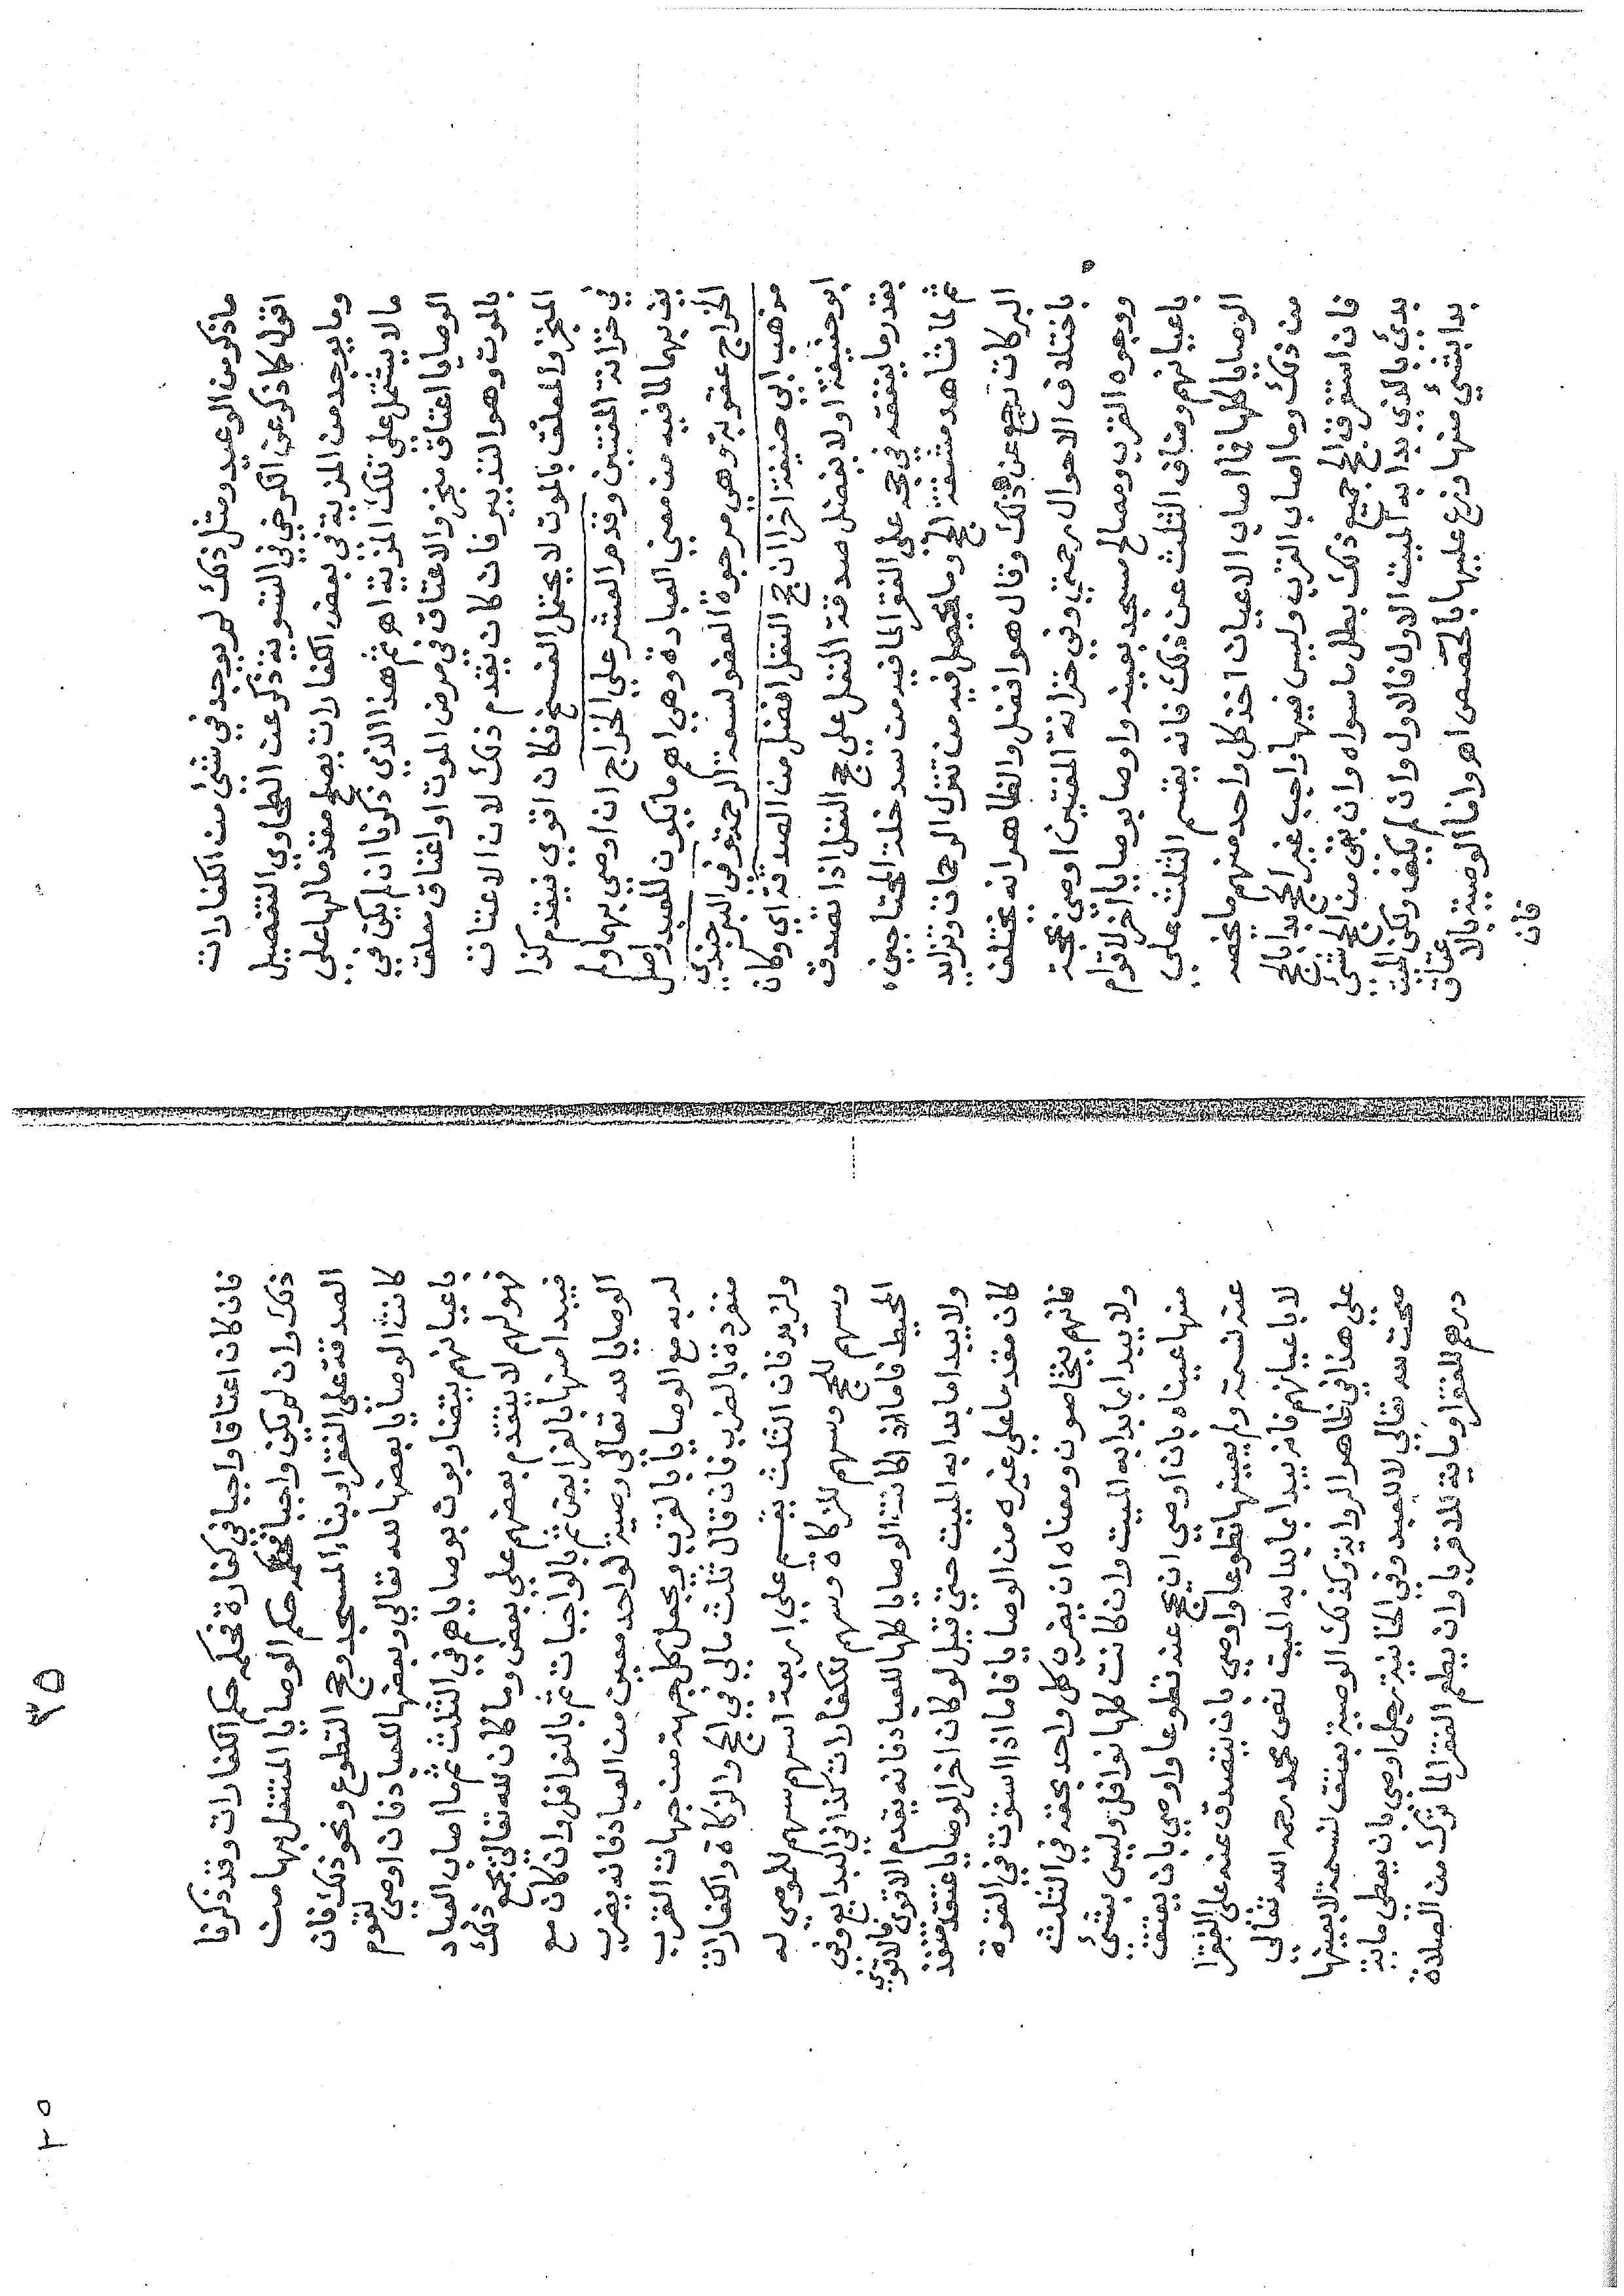 ماذكر من الوعيد ومثل ذلك لم يوجد في شئ من الكفارات
اقول كما ذكر عن الكرخي في التسوية ذكر عن الطحاوي التفصيل
وما يوجد من المزية في بعض الكفارات يصلح مقدما لها على
ما لا يشتمل على تلك المزية اهـ ثم هذا الذي ذكرنا ان لم يكن في
الوصايا اعتاق منجز والاعتاق في مرض الموت او اعتاق معلق
بالموت وهو التدبير فان كان تقدم ذلك لان الاعتاق
المنجز والمعلق بالموت لا يحتمل الفسخ فكان اقوى فيقدم كذا
في خزانة المفتين وقدم العشر على الخراج ان اوصي بهما ولم
يف بهما لما فيه من معني العبادة وهي اهم ما يكون للعبد واصل
الخراج عقوبة وهي مرجوة العفو لسعة الرحمة وفي البرجندي
مذهب ابي حنيفة اخرا ان حج النفل افضل من الصدقة اي وكان
ابو حنيفة اولا يفضل صدقة النفل على حج النفل اذا تصدق
بقدر ما ينفقه في حجه على الفقرا لما فيه من سد خلة المحتاجين
ثم لما شاهد مشقة الحج وما يحصل فيه من تنزل الرحمات وتزايد
البركات رجع عن ذلك وقال هو افضل والظاهر انه يختلف
باختلاف الاحوال رحمتي وفي خزانة المفتين اوصى بحجة
ووجوه القرب ومصالح مسجد بعينه واوصا بوصايا اخر لاقوام
باعيانهم وضاق الثلث عن ذلك فانه يقسم الثلث على
الوصايا كلها فما اصاب الاعيان اخذ كل واحد منهم ما يخصه
من ذلك وما اصاب القرب وليس فيها واجب غير الحج بدا بالحج
فان استغرقه الحج جميع ذلك بطل ما سواه وان بقي من الحج شئ
بدئ بالذي بدا به الميت الاول فالاول وان لم يكف ولكن الميت
بدا بشئ منها وزع عليها بالحصص اهـ واما الوصية بالاعتاق
فان
فان كان اعتاقا واجبا في كفارة فحكمه حكم الكفارات وقد ذكرنا
ذلك وان لم يكن واجبا فحكمه حكم الوصايا المتنفل بها من
الصدقة على الفقرا وبناء المسجد وحج التطوع ونحو ذلك فان
كانت الوصايا بعضها لله تعالي وبعضها للعباد فان اوصي لقوم
باعيانهم يتضاربون بوصاياهم في الثلث ثم ما اصاب العباد
فهو لهم لا يتقدم بعضهم على بعض وما كان لله تعالي يجمع ذلك
فيبدا منها بالفرايض ثم بالواجبات ثم بالنوافل وان كان مع
الوصايا لله تعالى وصية لواحد معين من العباد فانه يضرب
له به مع الوصايا بالقرب ويجعل كل جهة من جهات القرب
منفردة بالضرب فان قال ثلث مالي في الحج والزكاة والكفارات
ولزيد فان الثلث يقسم على اربعة اسهم سهم للموصي له
وسهم للحج وسهم للزكاة وسهم للكفارات كذا في البدايع وفي
المحيط فاما اذا كانت الوصايا كلها للعباد فانه يقدم الاقوى فالاقوي
ولا يبدا ما بدا به الميت حتى قيل لو كان اخر الوصايا عتقه منفذ
كان مقدما على غيره من الوصايا فاما اذا استوت في القوة
فانهم يتحاصون ومعناه ان يضرب كل واحد بحقه في الثلث
ولا يبدا بما بدا به الميت وان كانت كلها نوافل وليس بشئ
منها عيناه بان اوصي ان يحج عنه تطوعا واوصي بان يعتق
عنه نسمة ولم يعينها تطوعا واوصي بان يتصدق عنه على الفقرا
لا باعيانهم فانه يبدا بما بدا به الميت نص محمد رحمه الله تعالي
على هذا في ظاهر الرواية وكذلك الوصية بعتق النسمة لا بعينها
صحت لله تعالي لا للعبد وفي الخانية رجل اوصى بان يعطى ماية
درهم للفقرا وماية للاقربا وان يطعم الفقرا لما ترك من الصلاة
٣٥
٢٠